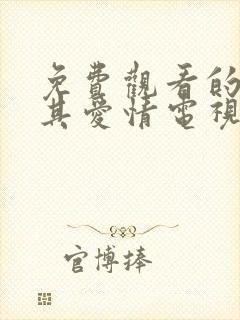 免費觀看的
其愛情電視
官博捧